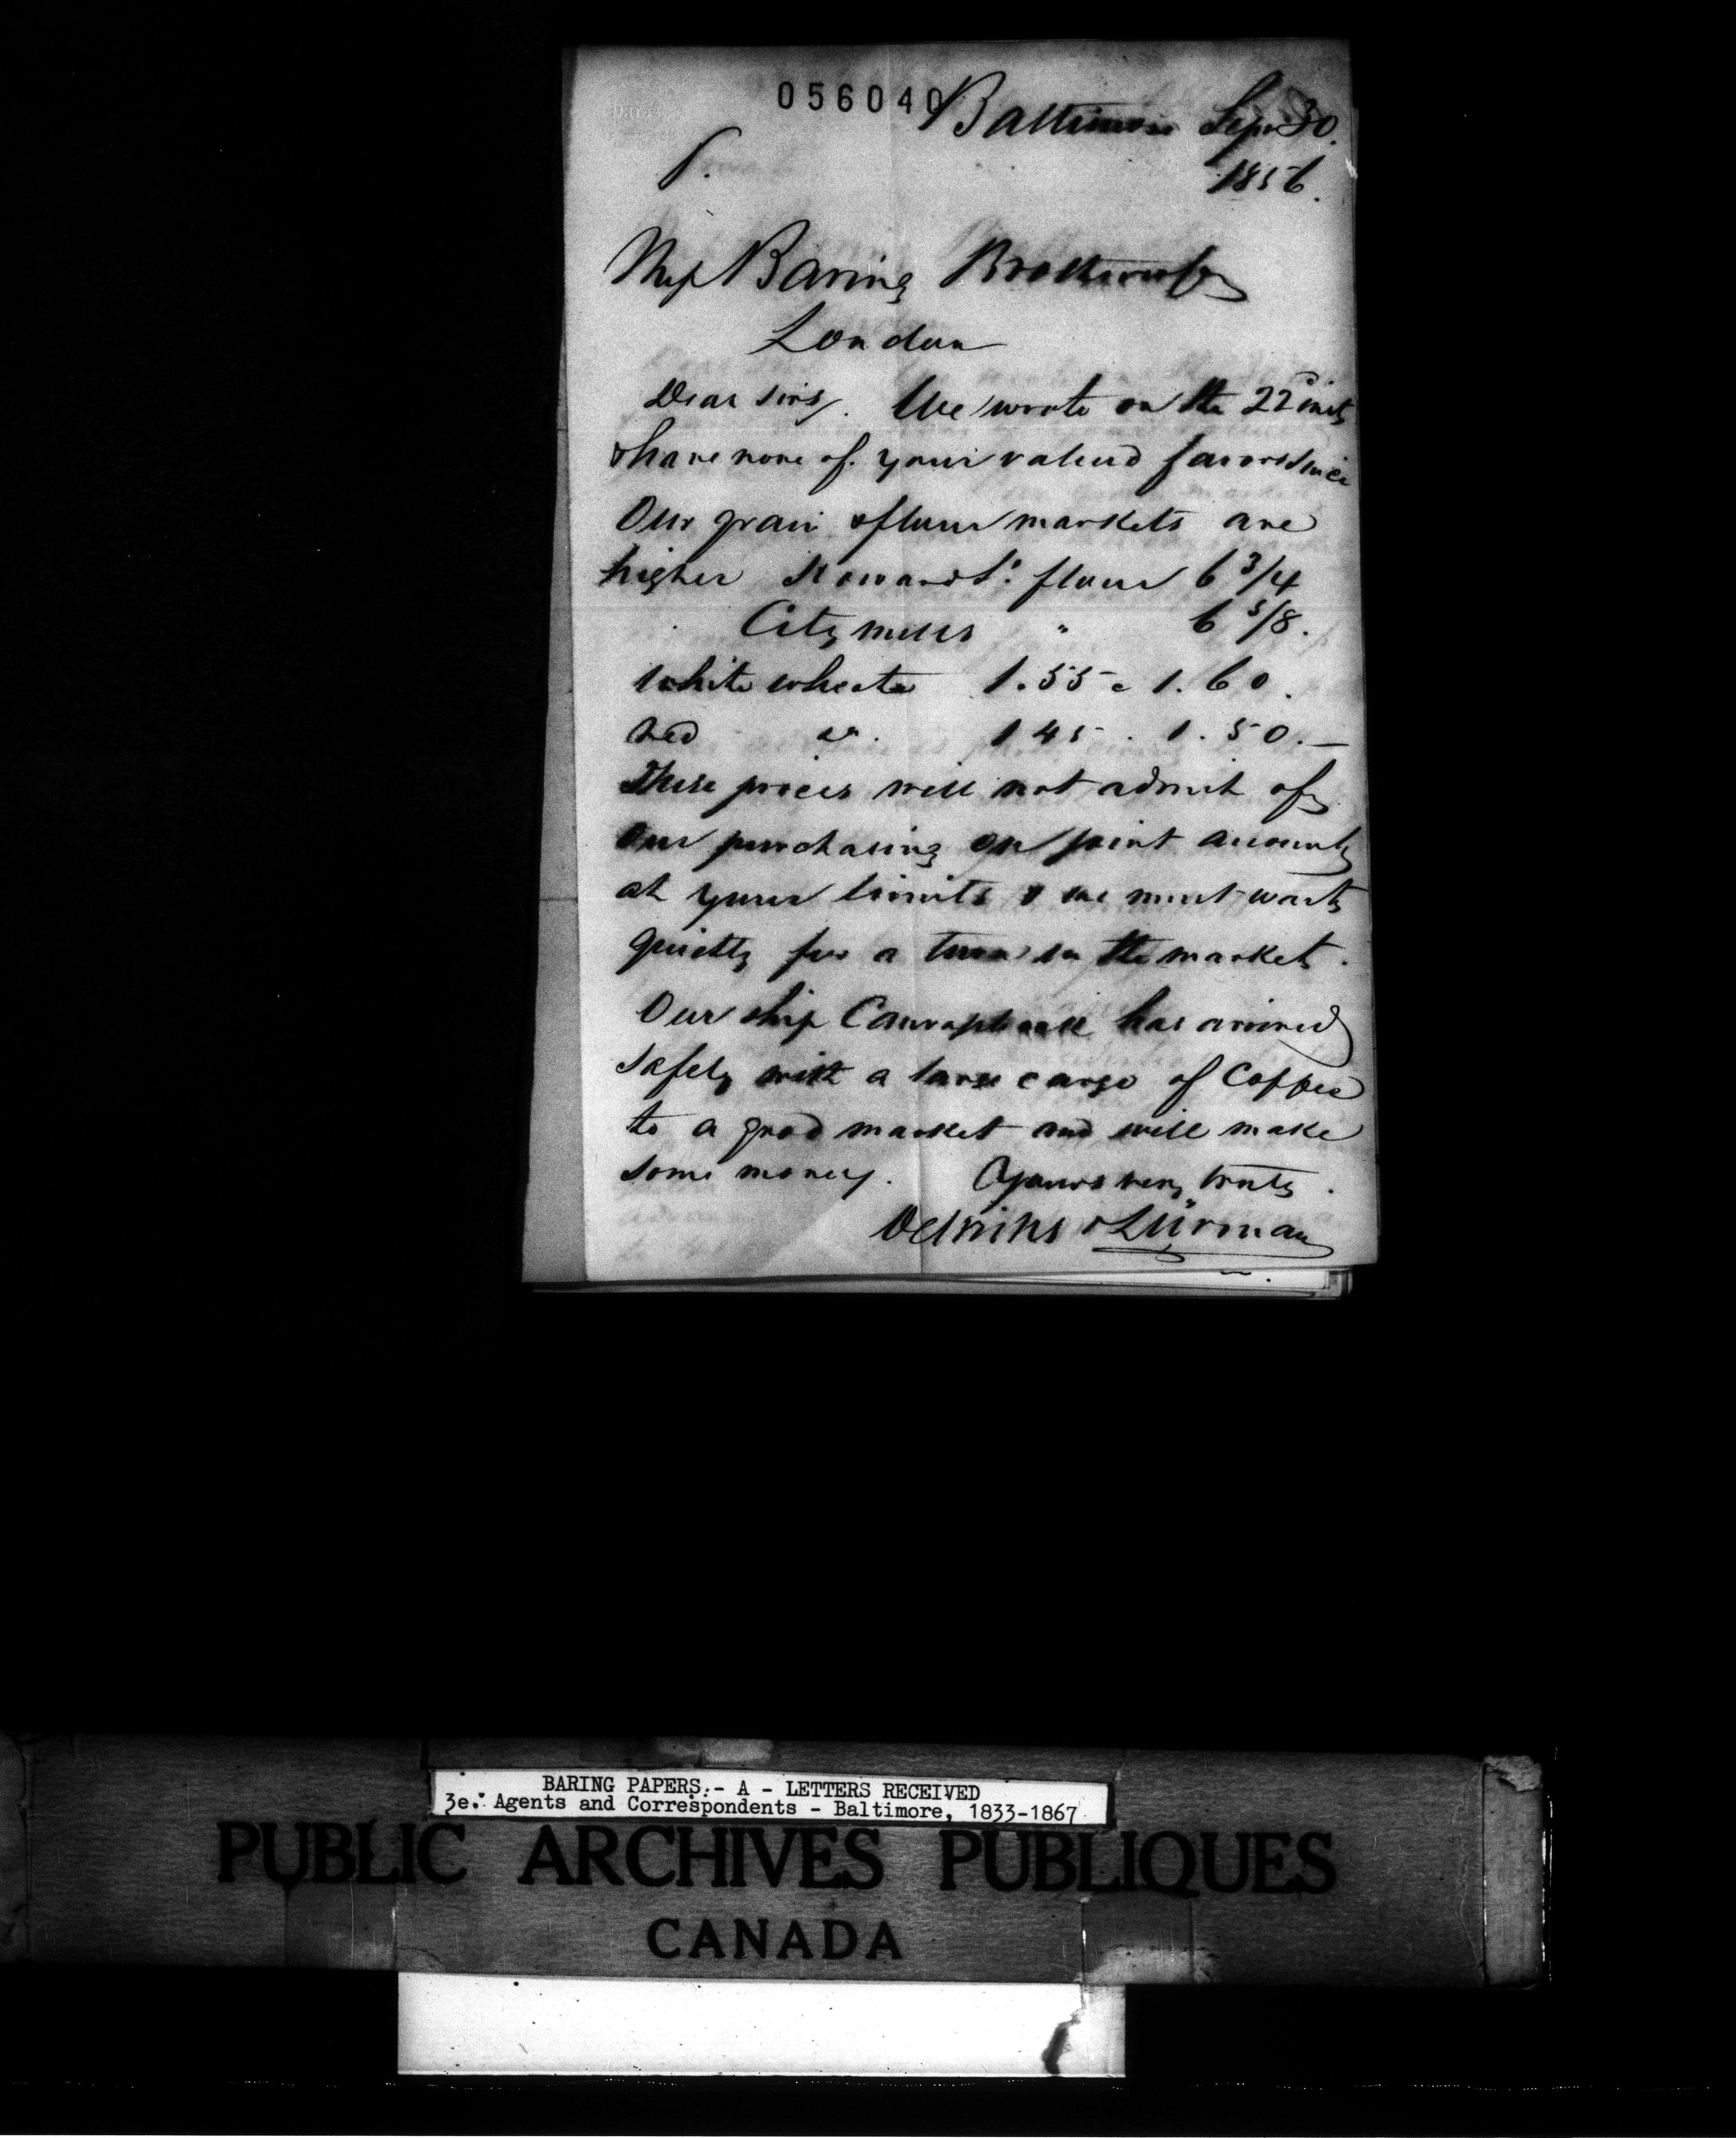 056040
Baltimore Sep 30.
1856.
Mess Baring Brothers & Co
London
Dear Sirs, We wrote on the 22d inst
& have none of your valued favors since
Our grain & flour markets are
higher Howard St. flour 6 3/4
City mills " 6 5/8.
White wheat 1.55 a 1.60.
red do. 1 45 . 1.50.—
These prices will not admit of
our purchasing on joint account
at your limits & we must wait
quietly for a turn in the market.
Our ship has arrived
safely with a large cargo of Coffee
to a good market and will make
some money. Yours very truly.
Oelrichs & Lürman
BARING PAPERS.- A - LETTERS RECEIVED
3e. Agents and Correspondents - Baltimore, 1833-1867
PUBLIC ARCHIVES PUBLIQUES
CANADA